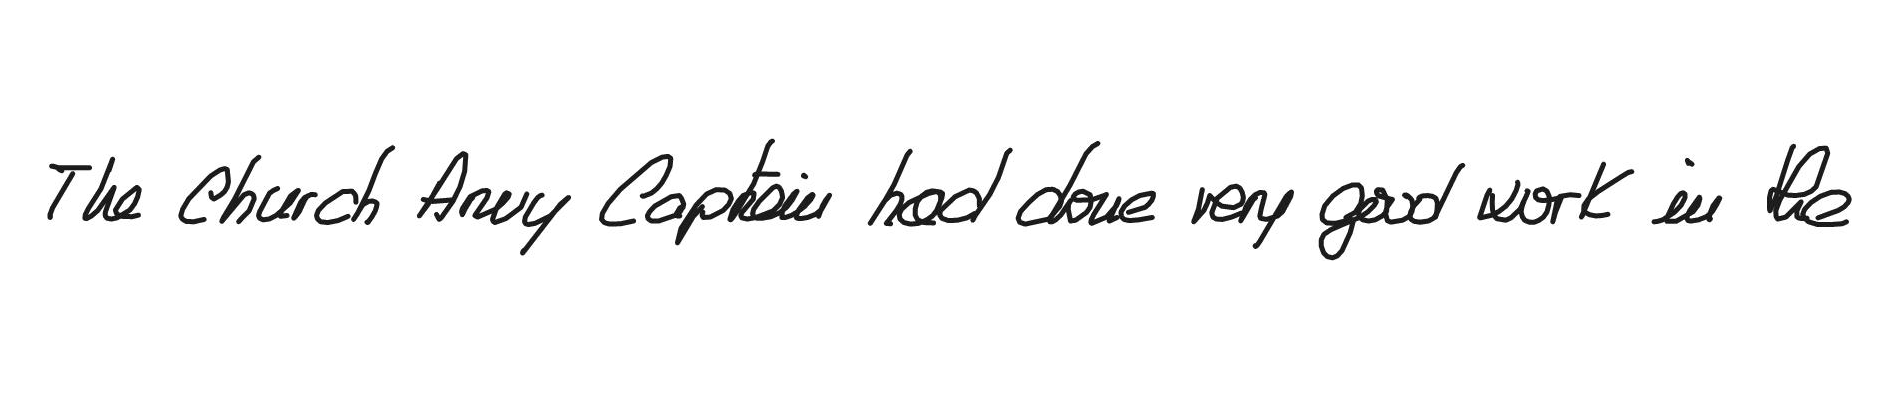 The Church Army Captain had done very good work in the